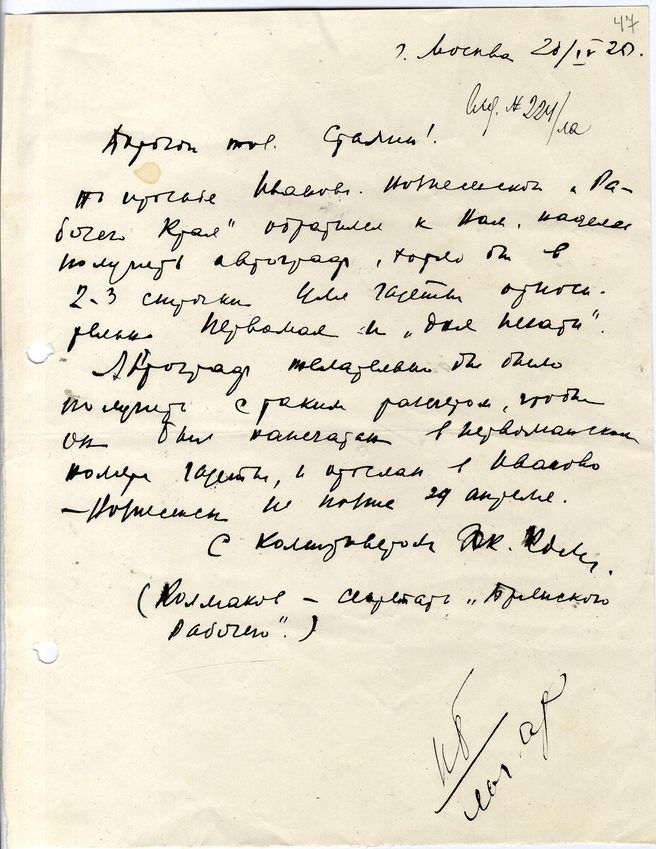 47
г. Москва 20/IV 25 г.
№ 224/
Дорогой тов. Сталин!
По просьбе Иваново-Вознесенской „Ра-
бочего Края“ обратился к Вам, надеясь
получить автограф, хотя бы в
2-3 строчки для газеты относи-
тельно Первомая и „дня печати“.
Автограф желательно бы было
получить с таким расчетом, чтобы
он был напечатан в первомайском
номере газеты, и прослан в Иваново
-Вознесенск не позже 29 апреля.
С комприветом
(Колмаков – секретарь
Рабочего“.)